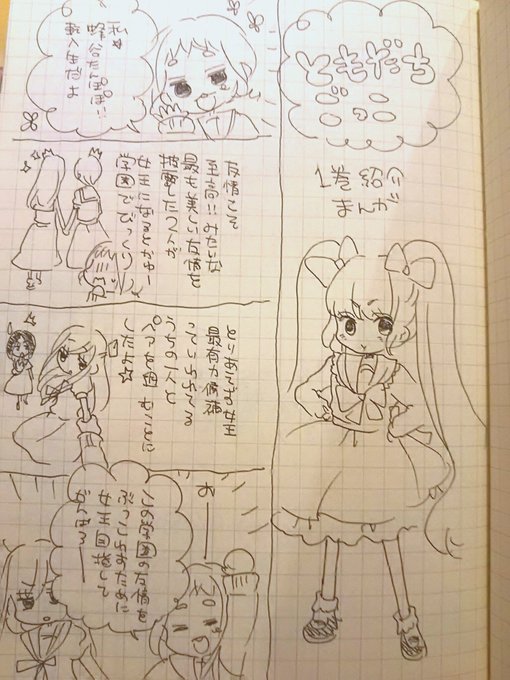 ともだち
ごっこ
1巻 紹介
まんが
私☆
蜂谷たんぽぽ!!
転入生だよ
友情こそ
至高!!みたいな
最も美しい友情を
披露した2人が
女王になるとかゆー
学園でびっくり!
とりあえず女王
最有力候補
っていわれてる
うちの一人と
ペアを組むことに
したよ☆
おー
この学園の友情を
ぶっこわすために
女王目指して
がんばるー